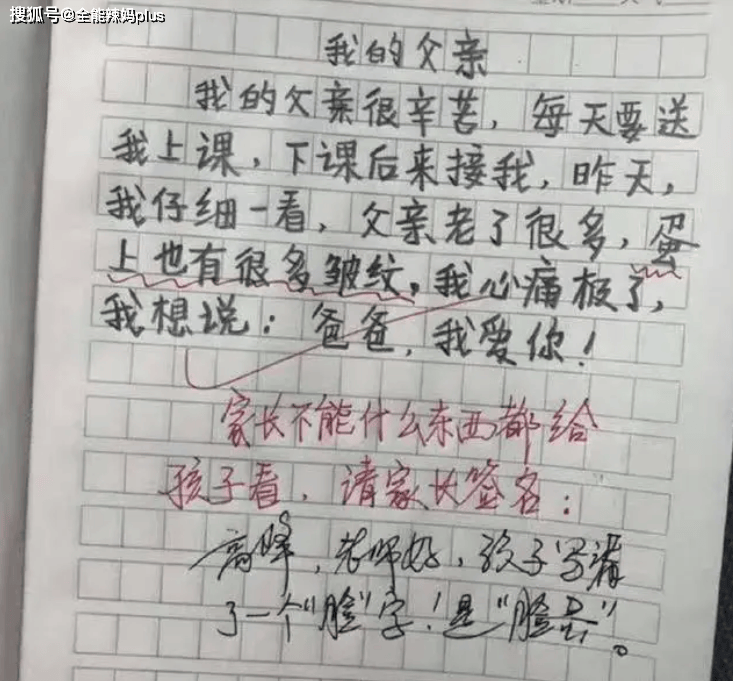 搜狐号@全能辣妈plus
我的父亲
我的父亲很辛苦，每天要送
我上课，下课后来接我，昨天，
我仔细一看，父亲老了很多，蛋
上也有很多皱纹，我心痛极了，
我想说：爸爸，我爱你！
家长不能什么东西都给
孩子看，请家长签名：
高峰，老师好，孩子写漏
了一个“脸”字！是“脸蛋”。